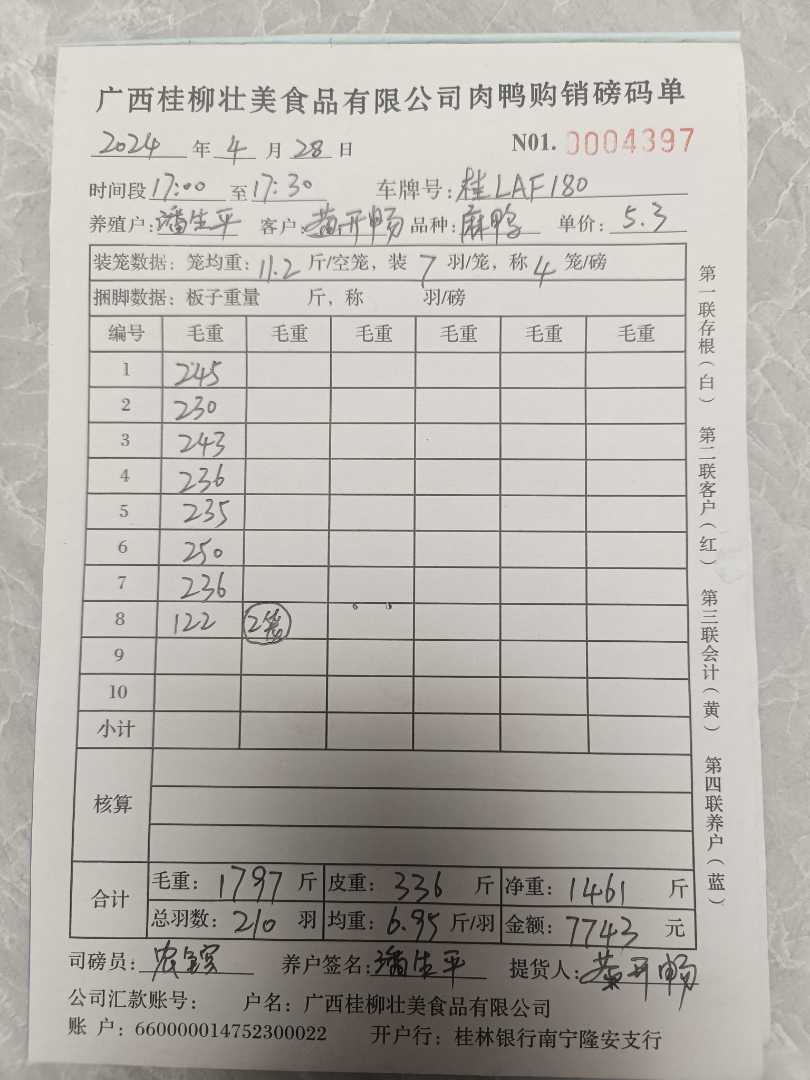 广西桂柳壮美食品有限公司肉鸭购销磅码单
2024 年 4 月 28 日 N01. 0004397
时间段 17:00 至 17:30 车牌号: 桂LAF180
养殖户: 潘生平 客户: 黄开畅 品种: 麻鸭 单价: 5.3
装笼数据: 笼均重: 11.2 斤/空笼, 装 7 羽/笼, 称 4 笼/磅
捆脚数据: 板子重量 斤, 称 羽/磅
编号 毛重 毛重 毛重 毛重 毛重 毛重
1 245
2 230
3 243
4 236
5 235
6 250
7 236
8 122 2笼
9
10
小计
核算
合计
毛重: 1797 斤 皮重: 336 斤 净重: 1461 斤
总羽数: 210 羽 均重: 6.95 斤/羽 金额: 7743 元
司磅员: 农宝宾 养户签名: 潘生平 提货人: 黄开畅
公司汇款账号: 户名: 广西桂柳壮美食品有限公司
账 户: 660000014752300022 开户行: 桂林银行南宁隆安支行
第一联存根(白) 第二联客户(红) 第三联会计(黄) 第四联养户(蓝)